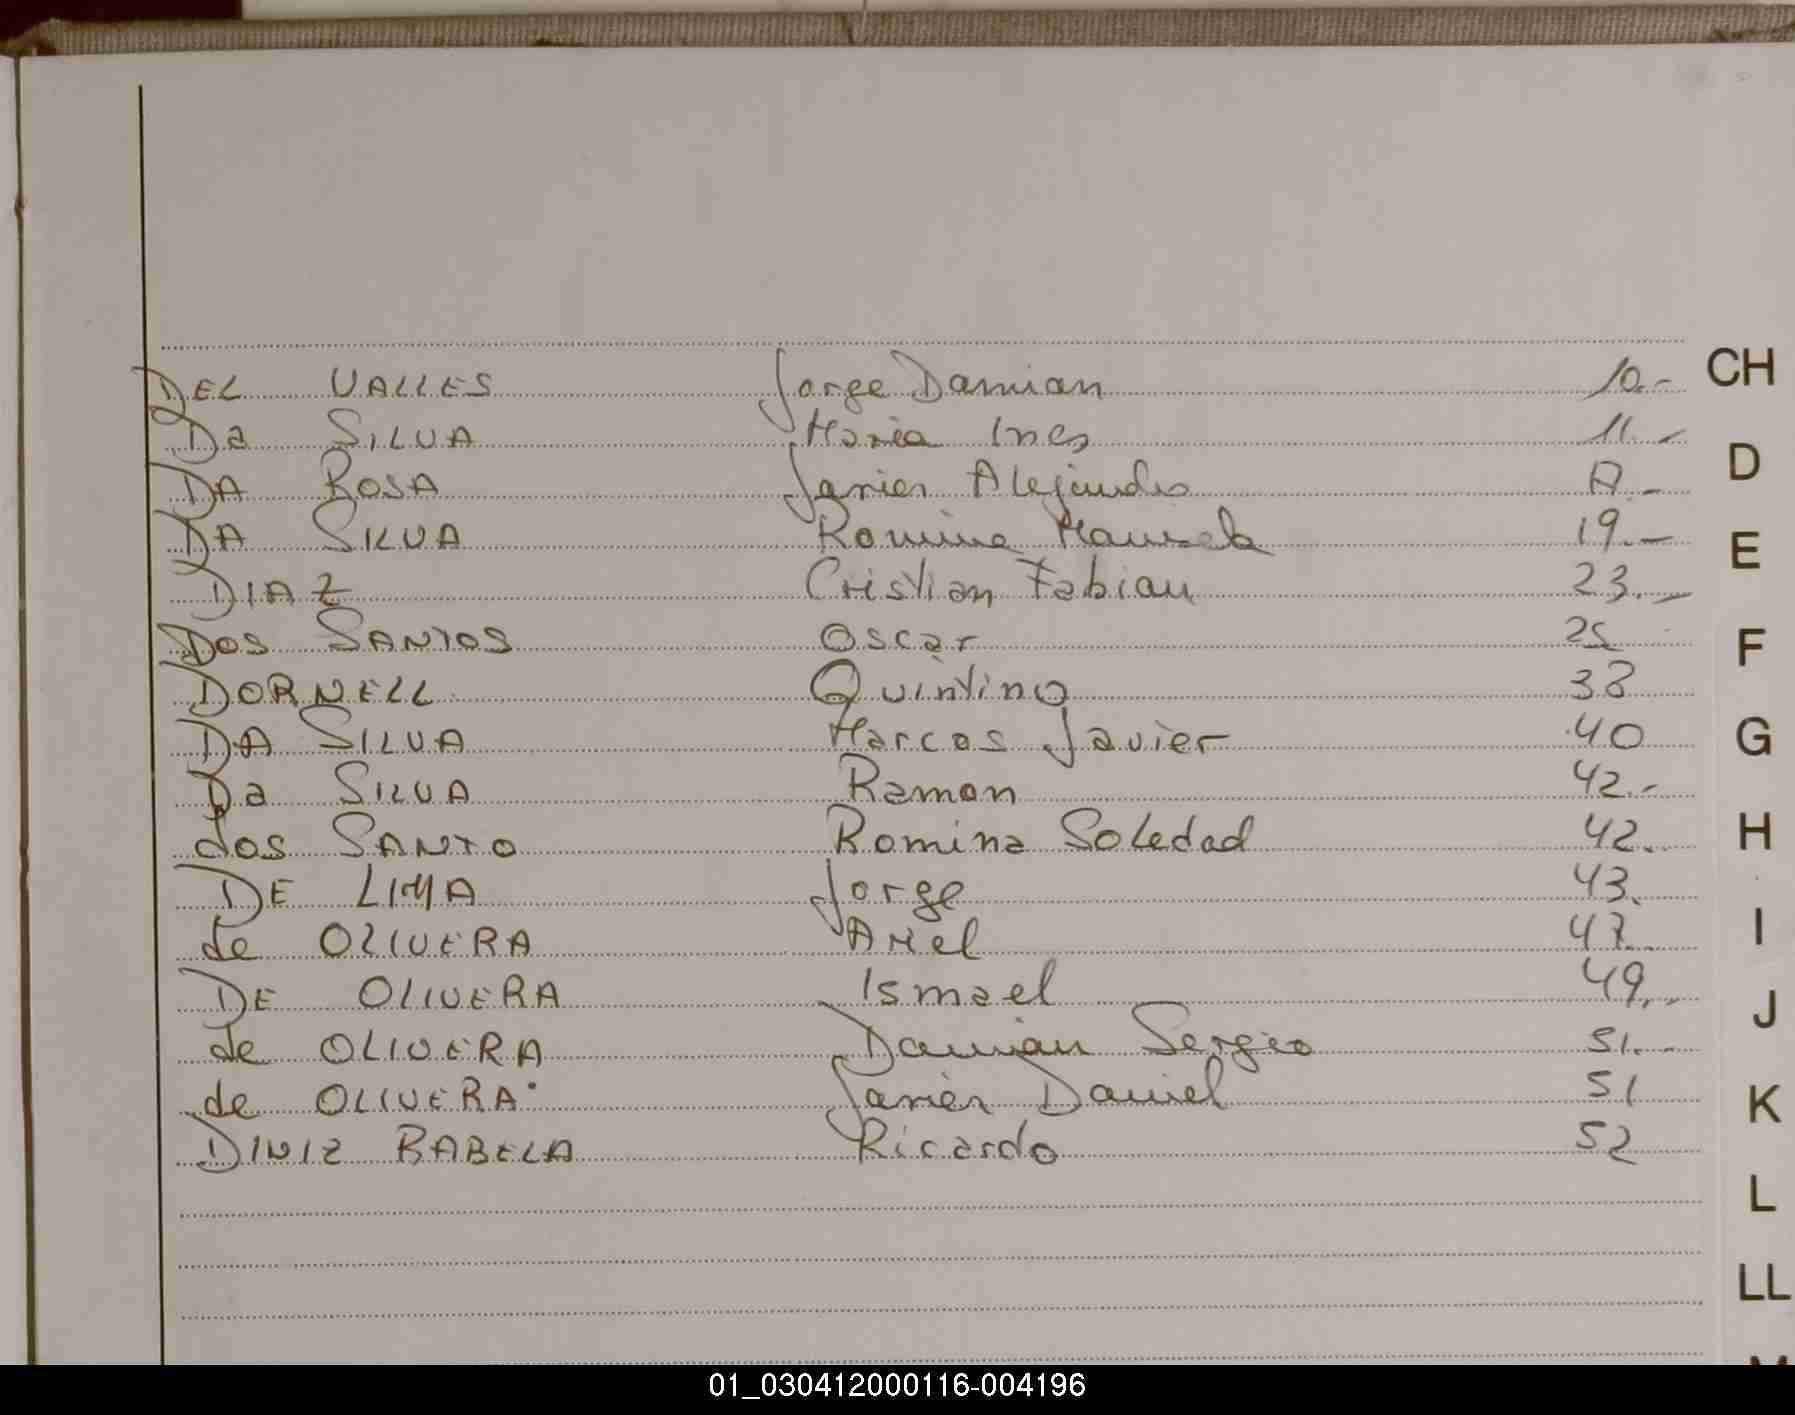 DEL VALLES Jorge Damian 10.-
CH
Da SILVA Maria Ines 11.-
DA ROSA Javier Alejandro
D
DA SILVA Romina 19.-
E
DIAZ Cristian Fabian 23.-
DOS SANTOS Oscar 25
F
DORNELL Quintino 38
DA SILVA Marcos Javier 40
G
Da SILVA Ramon 42.-
dos SANTO Romina Soledad 42.
H
DE LIMA Jorge 43.
de OLIVERA Ariel 47.
I
DE OLIVERA Ismael 49.
J
de OLIVERA Damian Sergio 51.-
de OLIVERA Javier Daniel 51
K
DINIZ RABELA Ricardo 52
L
LL
01_030412000116-004196